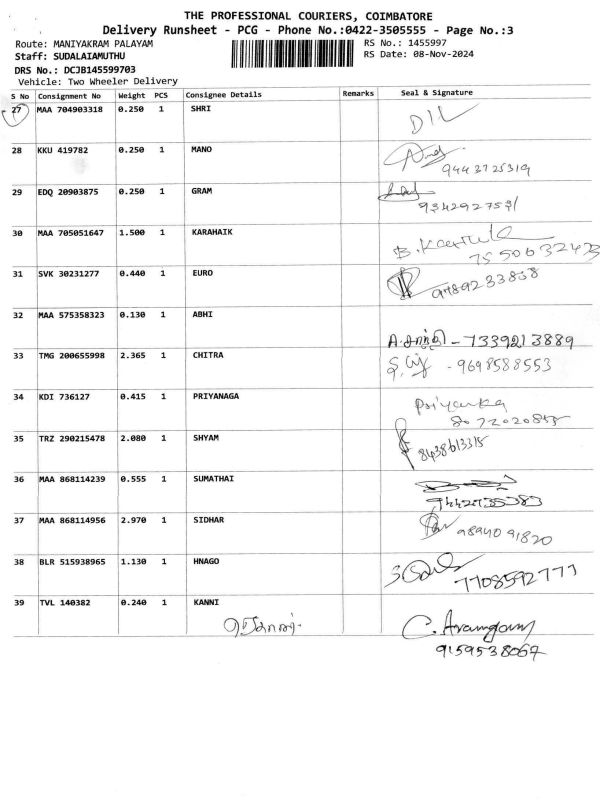 THE PROFESSIONAL COURIERS, COIMBATORE
Delivery Runsheet - PCG - Phone No.:0422-3505555 - Page No.:3
Route: MANIYAKRAM PALAYAM RS No.: 1455997
Staff: SUDALAIAMUTHU RS Date: 08-Nov-2024
DRS No.: DCJB145599703
Vehicle: Two Wheeler Delivery
S No Consignment No Weight PCS Consignee Details Remarks Seal & Signature
27 MAA 704903318 0.250 1 SHRI
DIL
28 KKU 419782 0.250 1 MANO
9443725319
29 EDQ 20903875 0.250 1 GRAM
9342927531
30 MAA 705051647 1.500 1 KARAHAIK
7550632423
31 SVK 30231277 0.440 1 EURO
9789233838
32 MAA 575358323 0.130 1 ABHI
7339213889
33 TMG 200655998 2.365 1 CHITRA
- 9698588553
34 KDI 736127 0.415 1 PRIYANAGA
Priyanka
35 TRZ 290215478 2.080 1 SHYAM
8438613315
36 MAA 868114239 0.555 1 SUMATHAI
37 MAA 868114956 2.970 1 SIDHAR
9894091820
38 BLR 515938965 1.130 1 HNAGO
7708592777
39 TVL 140382 0.240 1 KANNI
9159538067